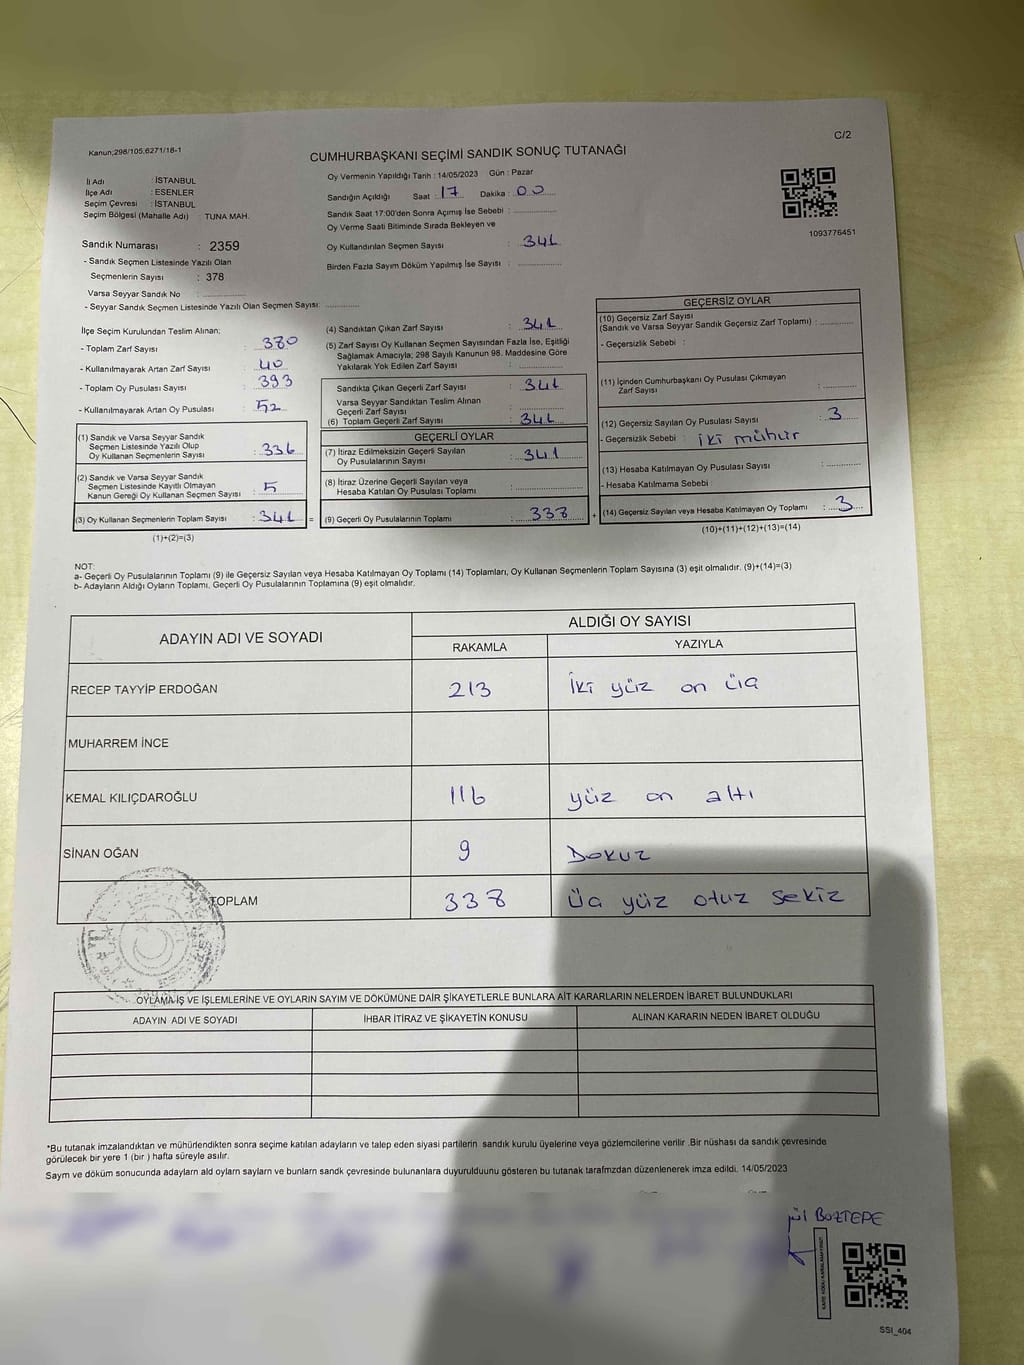 C/2
Kanun;298/105,6271/18-1
CUMHURBAŞKANI SEÇİMİ SANDIK SONUÇ TUTANAĞI
İl Adı : İSTANBUL
İlçe Adı : ESENLER
Seçim Çevresi : İSTANBUL
Seçim Bölgesi (Mahalle Adı) : TUNA MAH.
Oy Vermenin Yapıldığı Tarih : 14/05/2023 Gün : Pazar
Sandığın Açıldığı Saat : 17 Dakika : 00
Sandık Saat 17:00'den Sonra Açımış İse Sebebi :
Oy Verme Saati Bitiminde Sırada Bekleyen ve
Oy Kullandırılan Seçmen Sayısı : 341
Birden Fazla Sayım Döküm Yapılmış İse Sayısı :
1093776451
Sandık Numarası : 2359
- Sandık Seçmen Listesinde Yazılı Olan
Seçmenlerin Sayısı : 378
Varsa Seyyar Sandık No :
- Seyyar Sandık Seçmen Listesinde Yazılı Olan Seçmen Sayısı:
İlçe Seçim Kurulundan Teslim Alınan;
- Toplam Zarf Sayısı : 380
- Kullanılmayarak Artan Zarf Sayısı : 40
- Toplam Oy Pusulası Sayısı : 393
- Kullanılmayarak Artan Oy Pusulası : 52
(1) Sandık ve Varsa Seyyar Sandık
Seçmen Listesinde Yazılı Olup
Oy Kullanan Seçmenlerin Sayısı : 336
(2) Sandık ve Varsa Seyyar Sandık
Seçmen Listesinde Kayıtlı Olmayan
Kanun Gereği Oy Kullanan Seçmen Sayısı : 5
(3) Oy Kullanan Seçmenlerin Toplam Sayısı : 341 =
(1)+(2)=(3)
(4) Sandıktan Çıkan Zarf Sayısı : 341
(5) Zarf Sayısı Oy Kullanan Seçmen Sayısından Fazla İse, Eşitliği
Sağlamak Amacıyla; 298 Sayılı Kanunun 98. Maddesine Göre
Yakılarak Yok Edilen Zarf Sayısı :
Sandıkta Çıkan Geçerli Zarf Sayısı : 341
Varsa Seyyar Sandıktan Teslim Alınan
Geçerli Zarf Sayısı :
(6) Toplam Geçerli Zarf Sayısı : 341
GEÇERLİ OYLAR
(7) İtiraz Edilmeksizin Geçerli Sayılan
Oy Pusulalarının Sayısı : 341
(8) İtiraz Üzerine Geçerli Sayılan veya
Hesaba Katılan Oy Pusulası Toplamı :
(9) Geçerli Oy Pusulalarının Toplamı : 338 +
GEÇERSİZ OYLAR
(10) Geçersiz Zarf Sayısı
(Sandık ve Varsa Seyyar Sandık Geçersiz Zarf Toplamı) :
- Geçersizlik Sebebi :
(11) İçinden Cumhurbaşkanı Oy Pusulası Çıkmayan
Zarf Sayısı :
(12) Geçersiz Sayılan Oy Pusulası Sayısı : 3
- Geçersizlik Sebebi : iki mühür
(13) Hesaba Katılmayan Oy Pusulası Sayısı :
- Hesaba Katılmama Sebebi :
(14) Geçersiz Sayılan veya Hesaba Katılmayan Oy Toplamı : 3
(10)+(11)+(12)+(13)=(14)
NOT:
a- Geçerli Oy Pusulalarının Toplamı (9) ile Geçersiz Sayılan veya Hesaba Katılmayan Oy Toplamı (14) Toplamları, Oy Kullanan Seçmenlerin Toplam Sayısına (3) eşit olmalıdır. (9)+(14)=(3)
b- Adayların Aldığı Oyların Toplamı, Geçerli Oy Pusulalarının Toplamına (9) eşit olmalıdır.
ADAYIN ADI VE SOYADI ALDIĞI OY SAYISI
RAKAMLA YAZIYLA
RECEP TAYYİP ERDOĞAN 213 İki yüz on üç
MUHARREM İNCE
KEMAL KILIÇDAROĞLU 116 yüz on altı
SİNAN OĞAN 9 Dokuz
TOPLAM 338 üç yüz otuz sekiz
OYLAMA İŞ VE İŞLEMLERİNE VE OYLARIN SAYIM VE DÖKÜMÜNE DAİR ŞİKAYETLERLE BUNLARA AİT KARARLARIN NELERDEN İBARET BULUNDUKLARI
ADAYIN ADI VE SOYADI İHBAR İTİRAZ VE ŞİKAYETİN KONUSU ALINAN KARARIN NEDEN İBARET OLDUĞU
*Bu tutanak imzalandıktan ve mühürlendikten sonra seçime katılan adayların ve talep eden siyasi partilerin sandık kurulu üyelerine veya gözlemcilerine verilir .Bir nüshası da sandık çevresinde
görülecek bir yere 1 (bir ) hafta süreyle asılır.
Saym ve döküm sonucunda adayların ald oyların sayların ve bunların sandk çevresinde bulunanlara duyurulduunu gösteren bu tutanak tarafmzdan düzenlenerek imza edildi. 14/05/2023
BOZTEPE
SSI_404